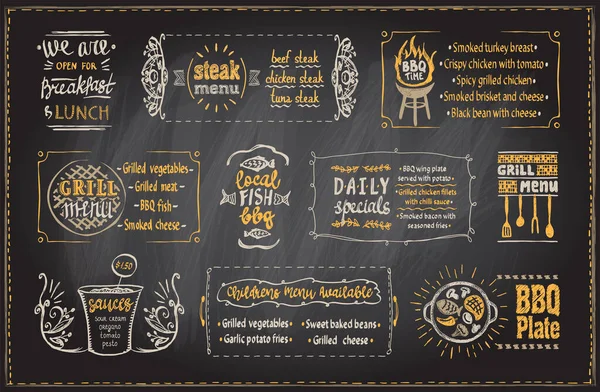 we are
OPEN FOR
breakfast
& LUNCH
steak
menu
beef steak
chicken steak
tuna steak
BBQ
TIME
• Smoked turkey breast
• Crispy chicken with tomato
• Spicy grilled chicken
• Smoked brisket and cheese
• Black bean with cheese
GRILL
menu
• Grilled vegetables
• Grilled meat
• BBQ fish
• Smoked cheese
local
FISH
bbq
DAILY
specials
• BBQ wing plate
served with potato
• Grilled chicken fillets
with chilli sauce
• Smoked bacon with
seasoned fries
GRILL
MENU
$1.50
sauces
sour cream
oregano
tomato
pesto
Childrens Menu Available
• Grilled vegetables
• Garlic potato fries
• Sweet baked beans
• Grilled cheese
BBQ
Plate